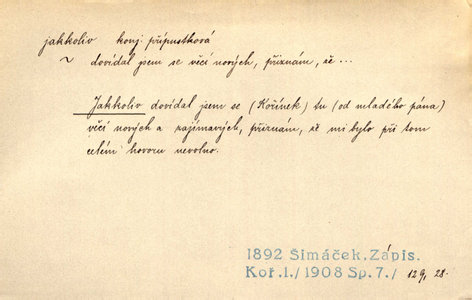 jakkoliv konj. přípustková
~ dovídal jsem se věcí nových, přiznám, že ...
Jakkoliv dovídal jsem se (Kořínek) tu (od mladého pána)
věcí nových a zajímavých, přiznám, že mi bylo při tom
celém hovoru nevolno.
1892 Šimáček, Zápis.
Koř.1./1908 Sp.7./ 129, 28.